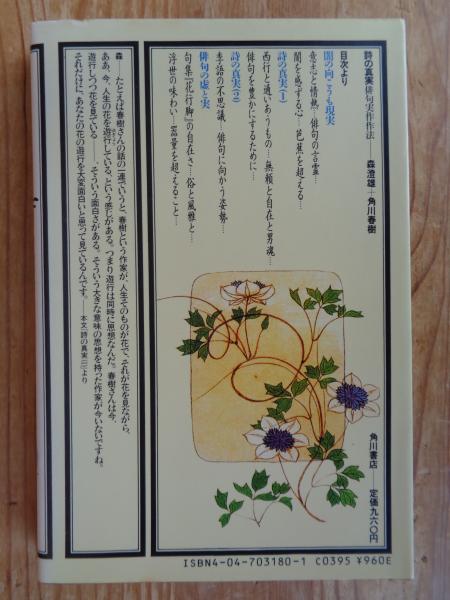 詩の真実 俳句実作作法
森澄雄+角川春樹
目次より
闇の向こうも現実
意志と情熱…俳句の言霊…
闇を感ずる心…芭蕉を超える…
詩の真実(1)
西行と通いあうもの…無頼と自在と男魂…
俳句を豊かにするために…
詩の真実(2)
季語の不思議…俳句に向かう姿勢…
句集『花行脚』の自在さ…俗と風雅と…
俳句の虚と実
浮世の味わい…器量を超えること…
角川書店──定価九六〇円
森──たとえば春樹さんの話の一連でいうと、春樹という作家が、人生そのものが花で、それが花を見ながら、
ああ、今、人生の花を遊行している、という感じがある。つまり遊行は同時に思想なんだ。春樹さんは今、
遊行しつつ花を見ている──、そういう面白さがある。そういう大きな意味の思想を持った作家が今いないですね。
それだけに、あなたの花の遊行を大変面白いと思って見ているんです。──本文「詩の真実(二)」より
ISBN4-04-703180-1 C0395 ¥960E